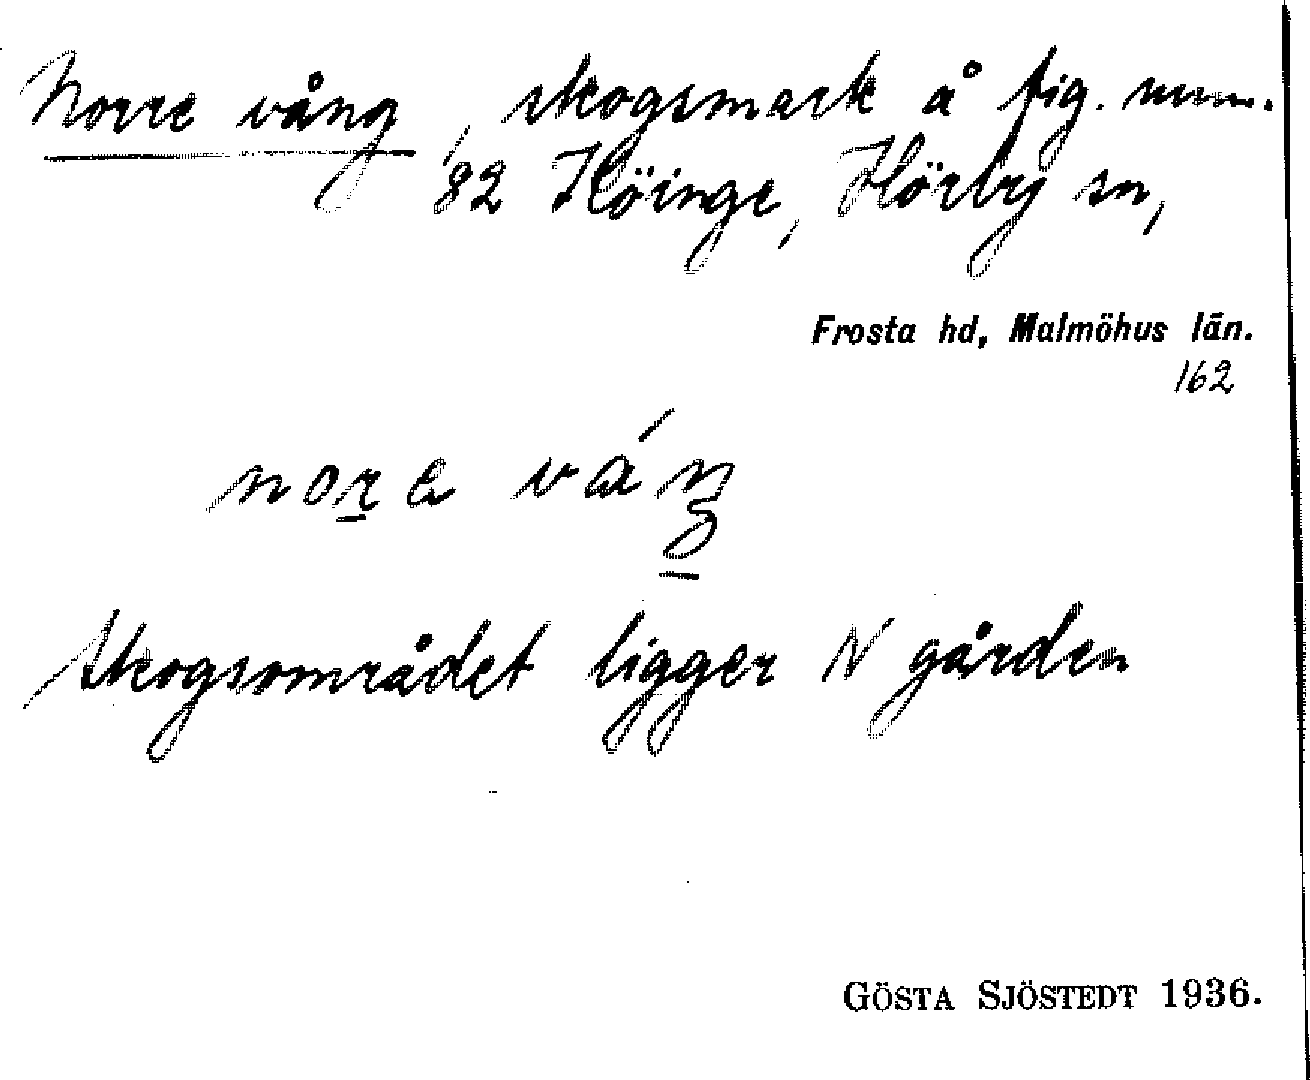 Norre vång, skogsmark å fig. num.
82 Köinge, Hörby sn,
Frosta hd, Malmöhus län.
162
nore váŋ
Skogsområdet ligger N gården
GÖSTA SJÖSTEDT 1936.